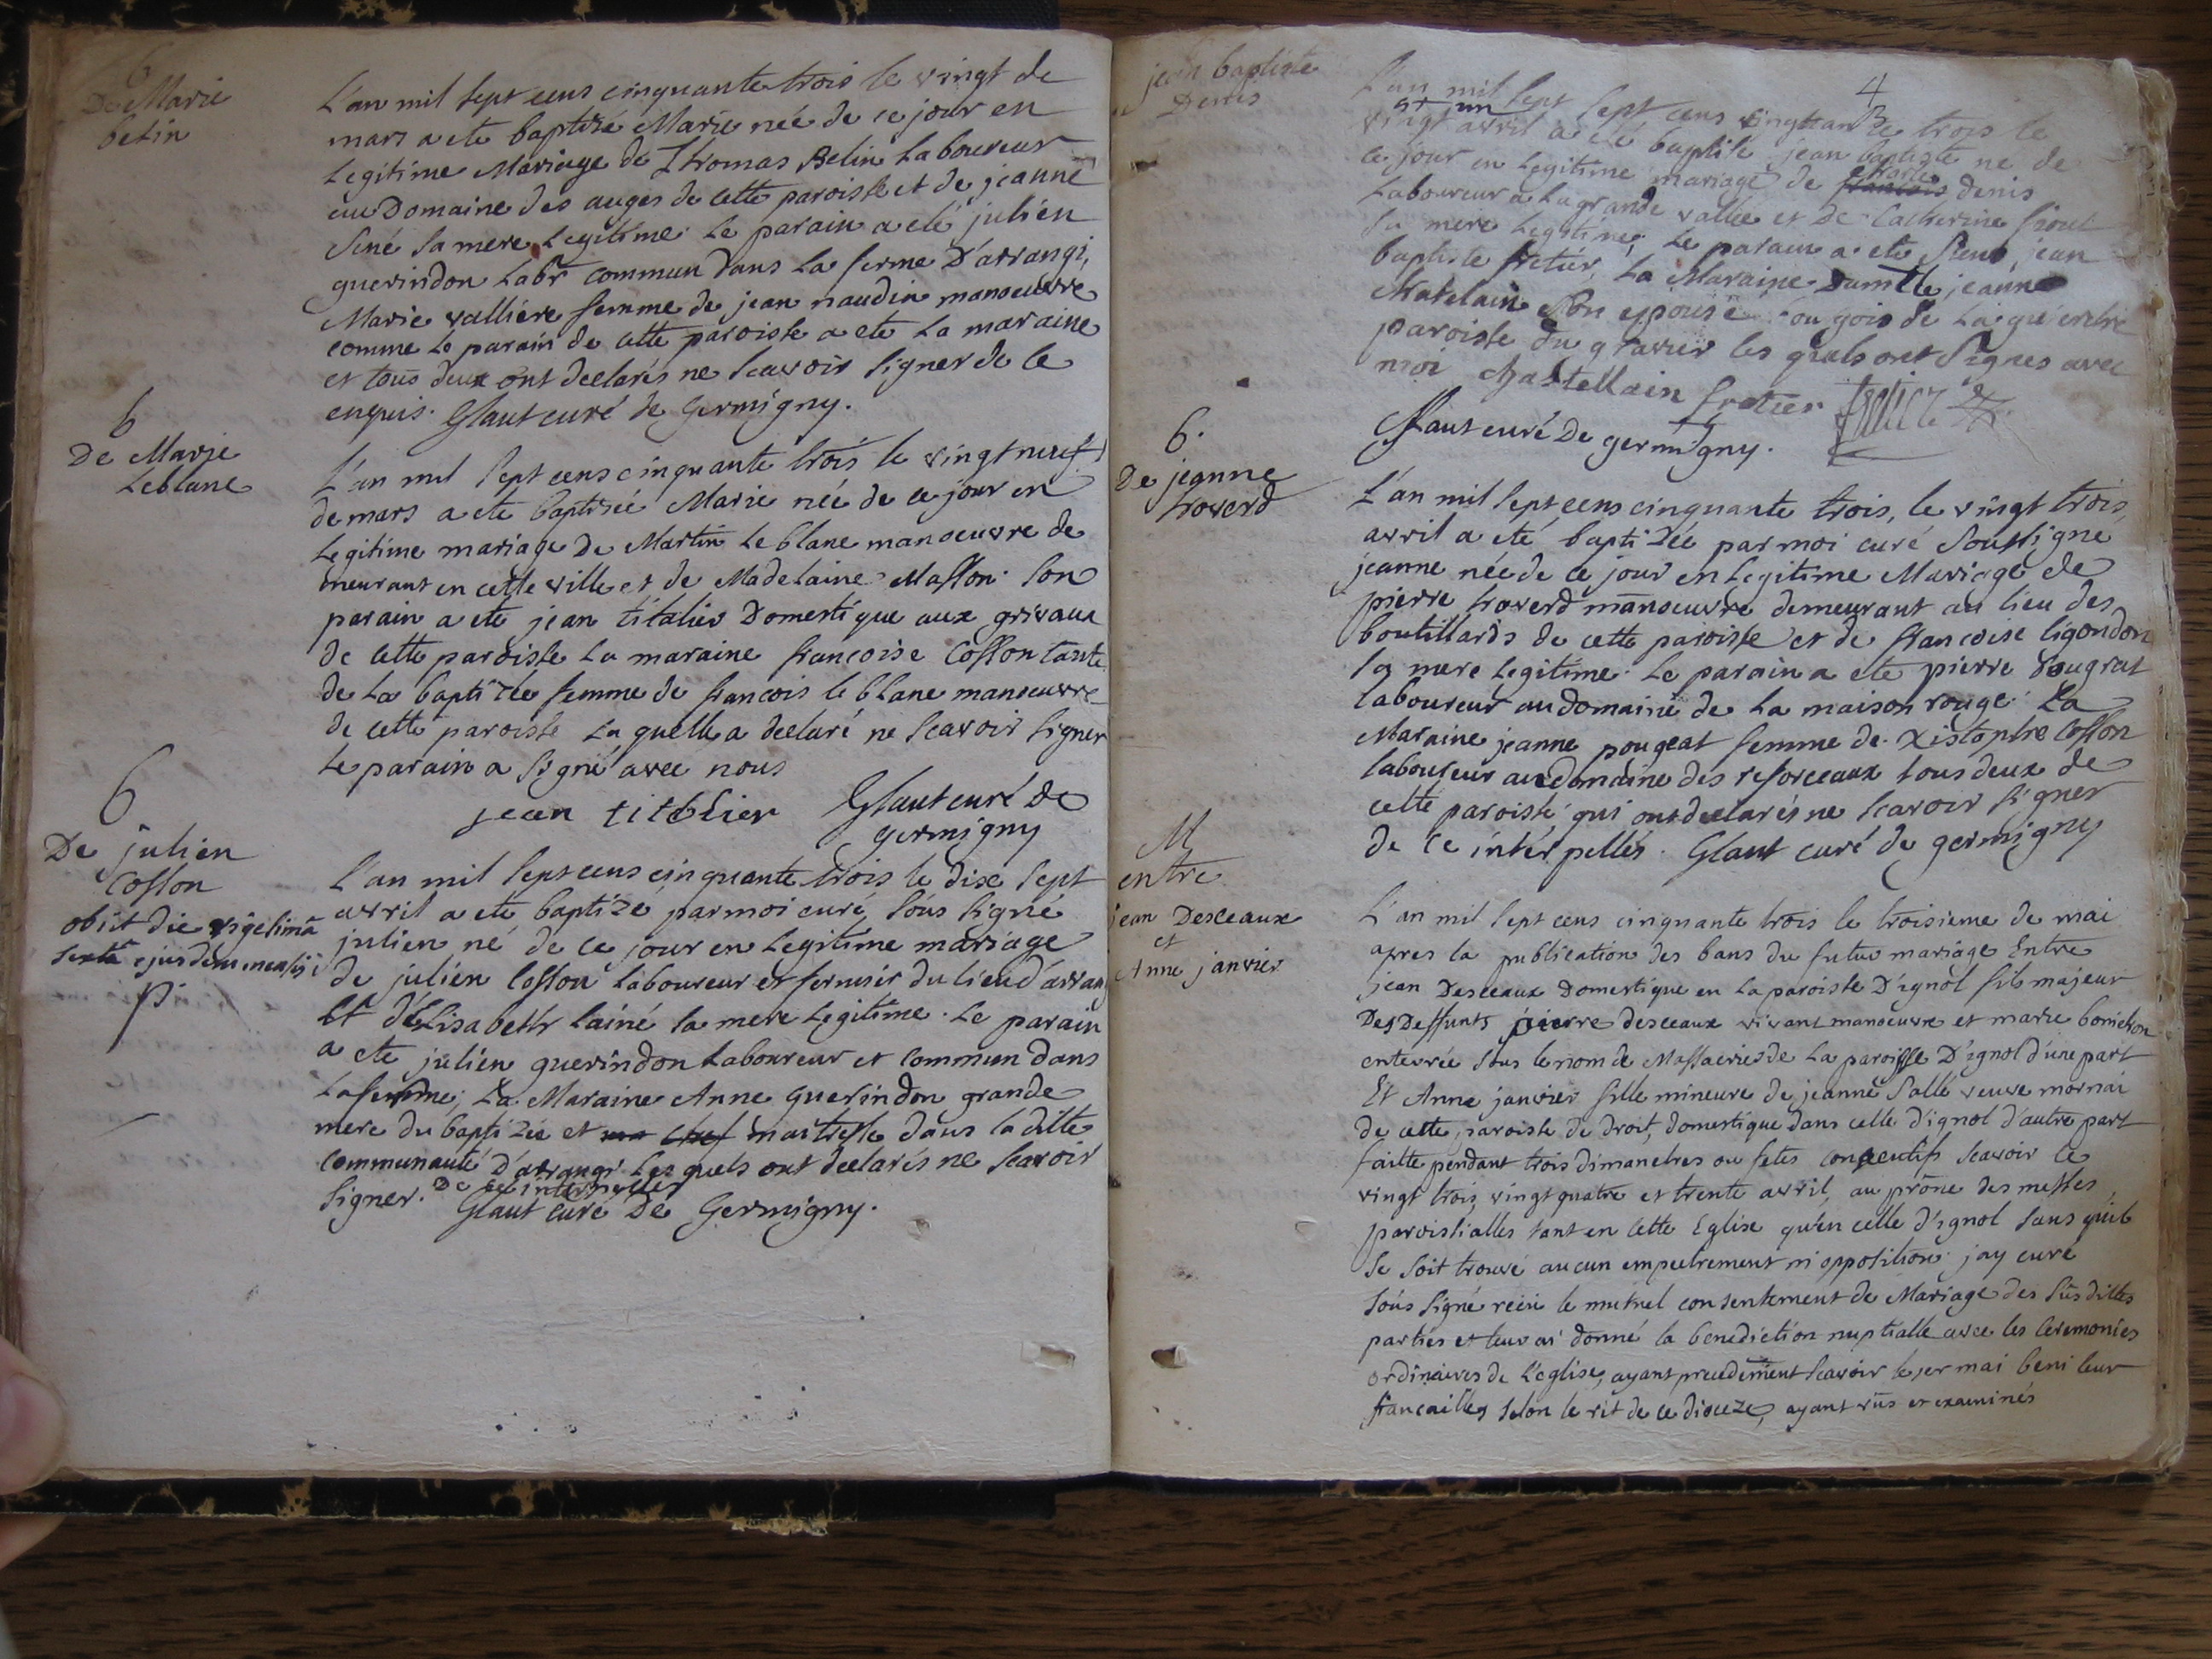 6
De Marie
belin
L'an mil sept cens cinquante trois le vingt de
mars a ete baptizé Marie née de ce jour en
Legitime Mariage de Thomas Belin Laboureur
au Domaine des auges de cette paroisse et de jeanne
siné sa mere Legitime. Le parain a eté julien
guerindon Labr commun dans La ferme D'arrangi,
Marie vallière femme de jean naudin manoeuvre
comme Le parain de cette paroisse a ete La maraine
et tous deux ont declarés ne scavoir signer de ce
enquis. Glaut curé de Germigny.
6
De Marie
Leblanc
L'an mil sept cens cinquante trois le vingt neuf
de mars a ete baptizée Marie née de ce jour en
Legitime mariage de Martin Leblanc manoeuvre de
meurant en cette ville et de Madelaine Masson. son
parain a ete jean titalier Domestique aux grivaux
de cette paroisse La maraine francoise Cosson tante
de La baptizée femme de francois le blanc manoeuvre
de cette paroisse La quelle a declaré ne scavoir signer
Le parain a signé avec nous
jean titblier Glaut curé de
germigny
6
De julien
Cosson
obiit die vigesimâ
sextâ ejusdem mensis
p.
L'an mil sept cens cinquante trois le dix sept
avril a ete baptizé par moi curé sous signé
julien né de ce jour en Legitime mariage
de julien Cosson Laboureur et fermier du lieu d'arran
et d'Elisabeth Lainé sa mere Legitime. Le parain
a ete julien guerindon Laboureur et commun dans
La ferme; La Maraine Anne guerindon grande
mere du baptizée et maitresse dans la ditte
communauté D'arrangi Lesquels ont declarés ne scavoir
signer. De ce interpellés
Glaut curé De Germigny.
jean baptiste
Denis
4
L'an mil sept cens cinquante trois le
vingt et un avril a eté baptisé jean baptiste ne de
ce jour en Legitime mariage de francois charles denis
Laboureur a La grande vallée et De Catherine
sa mere Legitime; Le parain a ete Sieur jean
baptiste fretier, La Maraine Damlle jeanne
Chatelain son epouse
paroisse du gravier les quels ont signes avec
moi chastellain fretier
Glaut curé De germigny.
6.
De jeanne
troverd
L'an mil sept cens cinquante trois, le vingt trois
avril a eté baptizée par moi curé soussigne
jeanne née de ce jour en Legitime Mariage de
pierre troverd manoeuvre demeurant au lieu des
boutillards de cette paroisse et de francoise ligondon
sa mere Legitime. Le parain a ete pierre
laboureur au domaine de La maison rouge. La
Maraine jeanne pougeat femme de Xistophe Cosson
laboureur au domaine des resorceaux tous deux de
cette paroisse qui ont declarés ne scavoir signer
de ce interpellés. Glaut curé de germigny
M
entre
jean Desceaux
et
Anne janvier
L'an mil sept cens cinquante trois le troisieme de mai
apres la publication des bans du futur mariage Entre
jean Desceaux Domestique en La paroisse D'ignol fils majeur
Des Deffunts pierre desceaux vivant manoeuvre et marie bonichon
enterrée sous le nom de Massacrier de La paroisse D'ignol d'une part
Et Anne janvier fille mineure de jeanne Sallé veuve mornai
de cette paroisse de Droit, domestique dans celle d'ignol d'autre part
faitte pendant trois dimanches ou fetes consecutifs scavoir le
vingt trois, vingt quatre et trente avril, au prône des messes
paroissialles tant en cette Eglise qu'en celle d'ignol sans qu'il
se soit trouvé aucun empechement ni opposition. jay curé
sous signé recu le mutuel consentement de Mariage des susdittes
parties et leur ai donné la benediction nuptialle avec les Ceremonies
ordinaires de L'eglise, ayant precedement scavoir le 1er mai beni leur
fiancailles selon le rit de ce dioceze, ayant vus et examinés